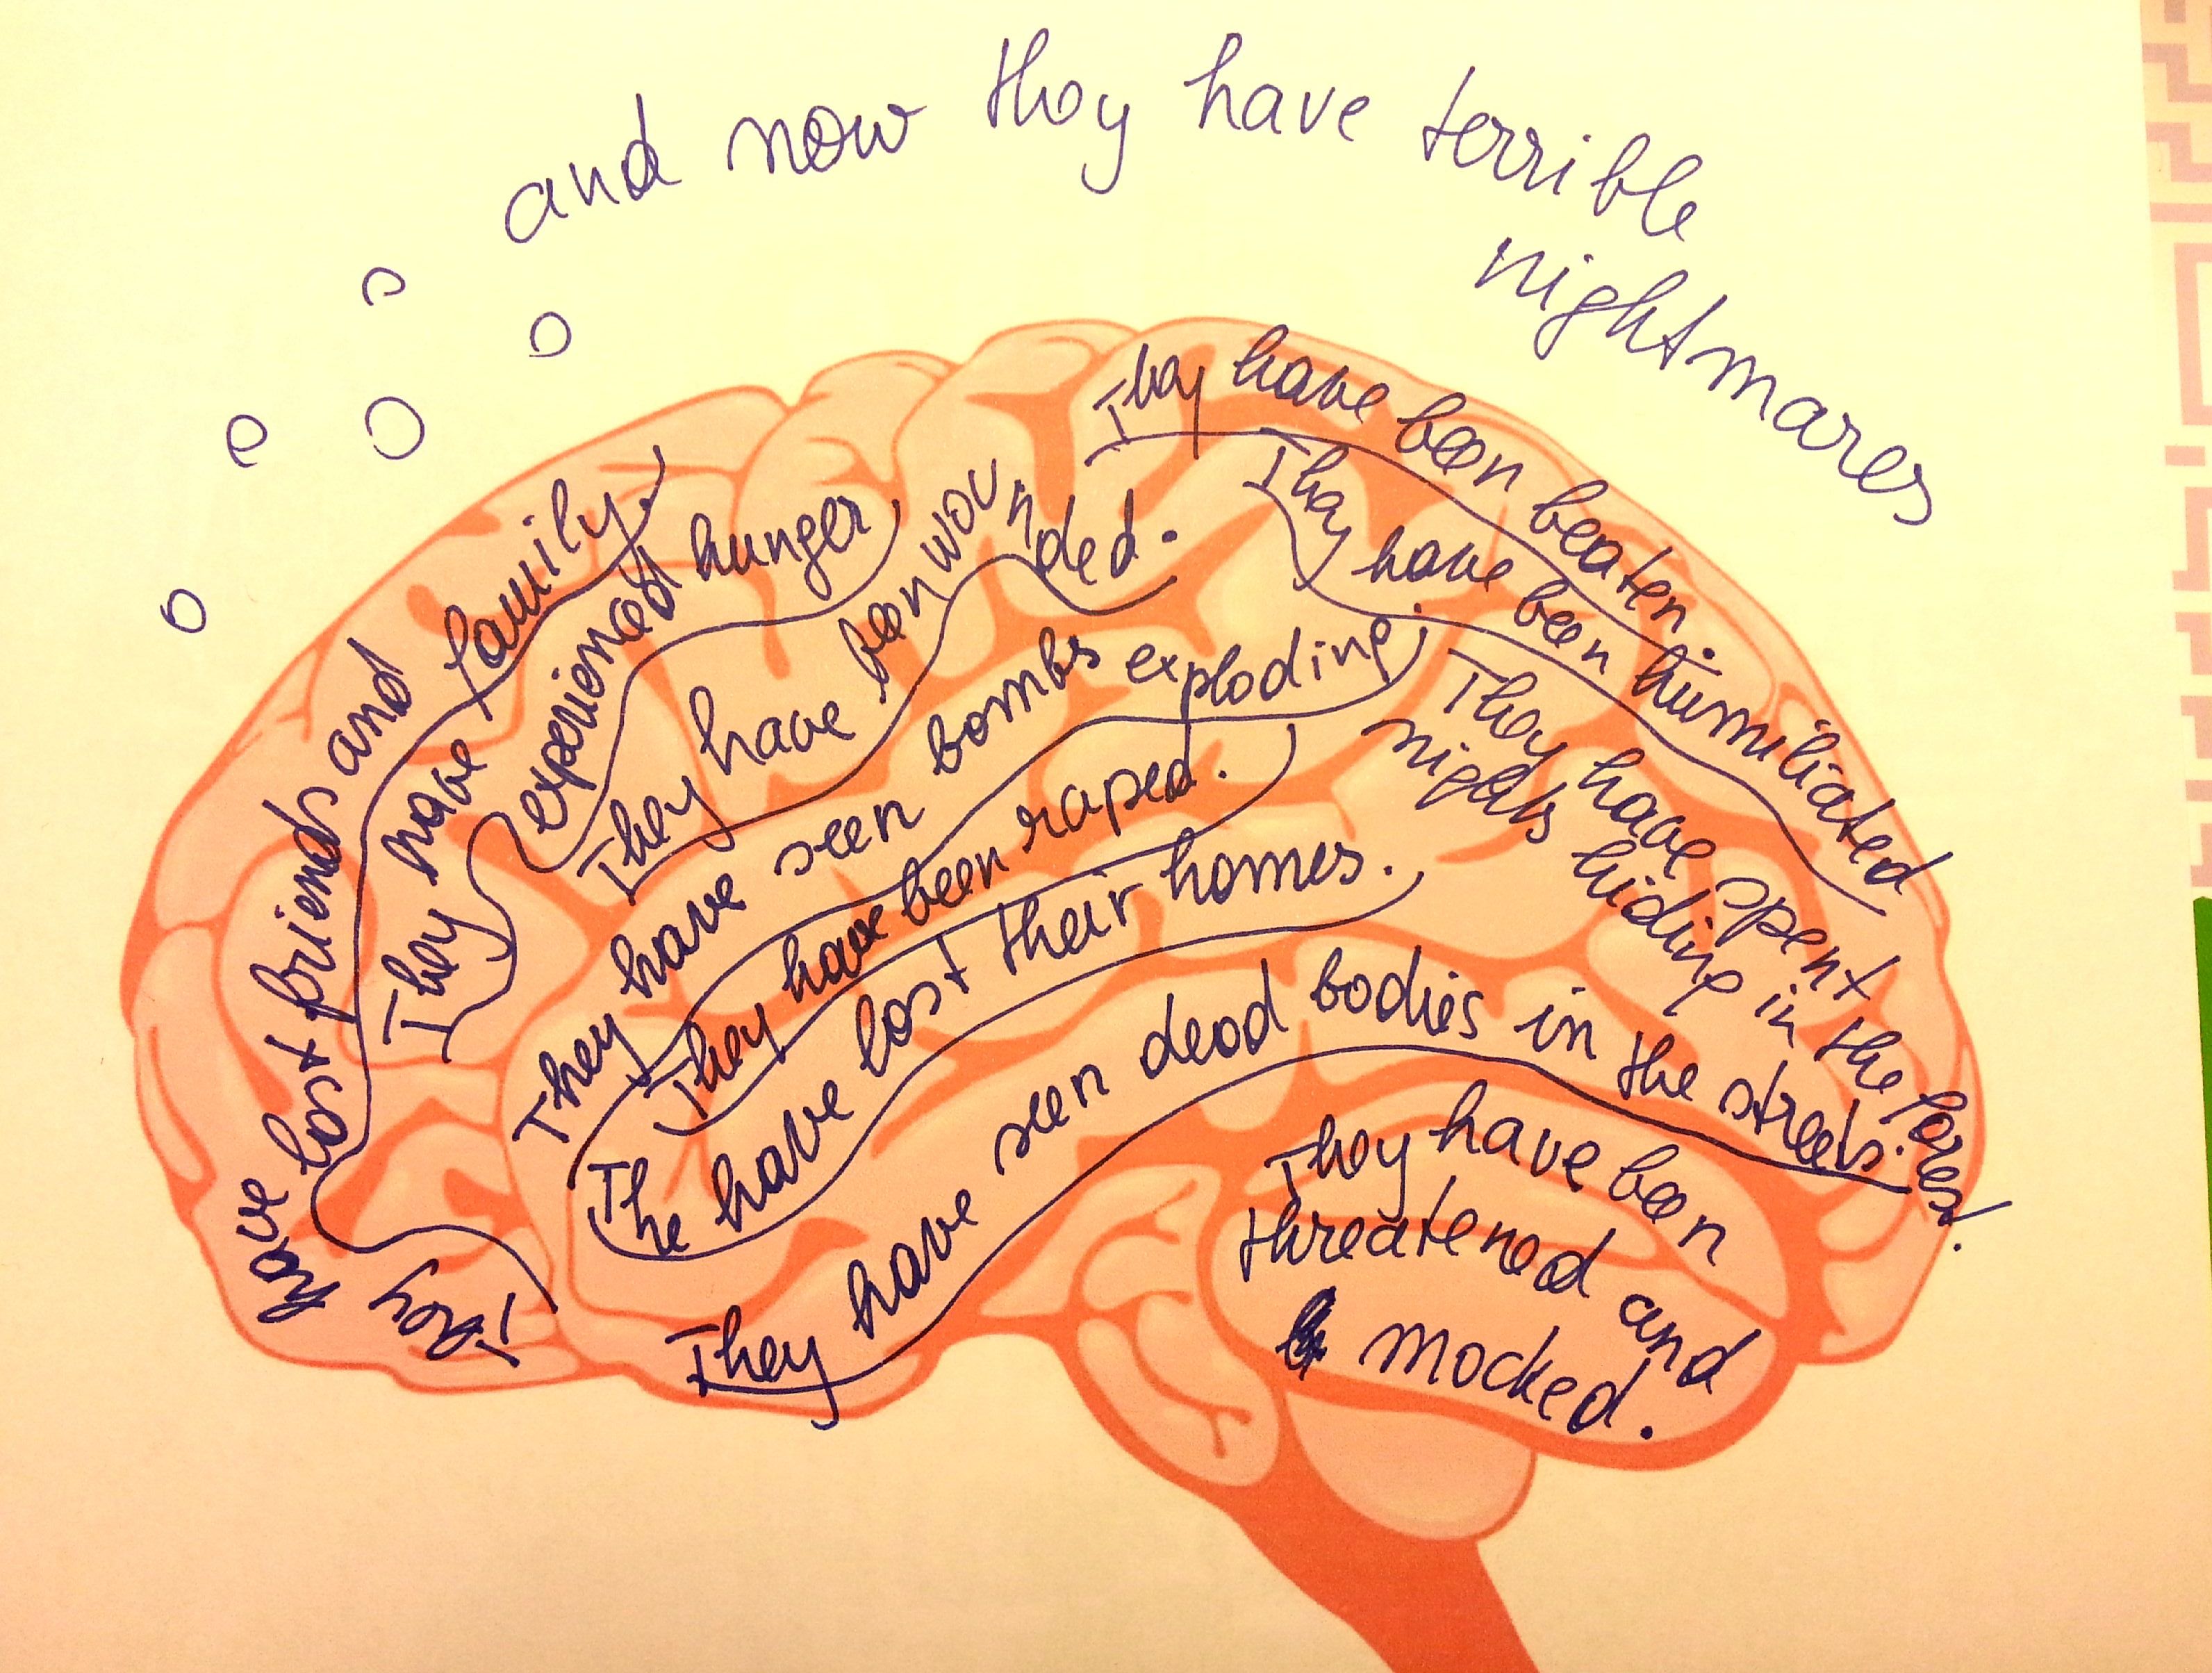 and now they have terrible
nightmares
They have lost friends and family.
They have experienced hunger
They have been wounded.
They have seen bombs exploding.
They have been raped.
The he have lost their homes.
They have seen dead bodies in the streets.
They have been beaten.
They have been humiliated
They have spent the
nights hiding in the forest.
They have been
threatened and
mocked.